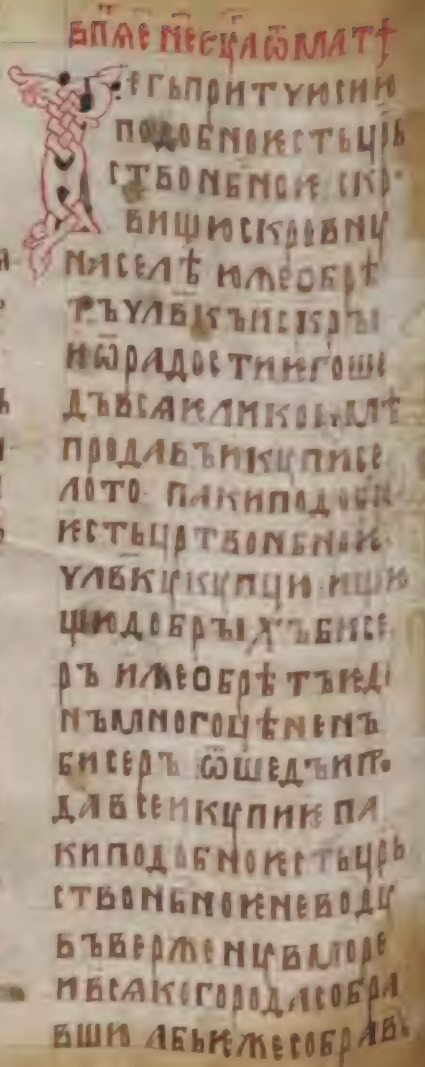 в п҃ѧ е҃ мсцⷭ҇а ѿ мат
Рⷱ҇е гь притуꙋ сию
подобно ѥсть црь
ство нбⷭ҇ноѥ скро
вищю скровну
на селѣ юже обрѣ
тъ улв҃къ и скры
и ѿ радости ѥго ше
дъ вса ѥлико имѣ
продавъ и купи се
лото· паки подобн
ѥсть црⷭ҇тво нбⷭ҇ноѥ
улв҃ку купцю· ищю
щю добрыхъ бисе
ръ иже обрѣтъ ѥди
нъ многоцѣненъ
бисеръ ѿшедъ и про
дав все и купи и· па
ки подобно ѥсть црь
ство нбⷭ҇ноѥ неводу
въвержену в море
и всакого рода собра
вшю абьѥ же собравъ